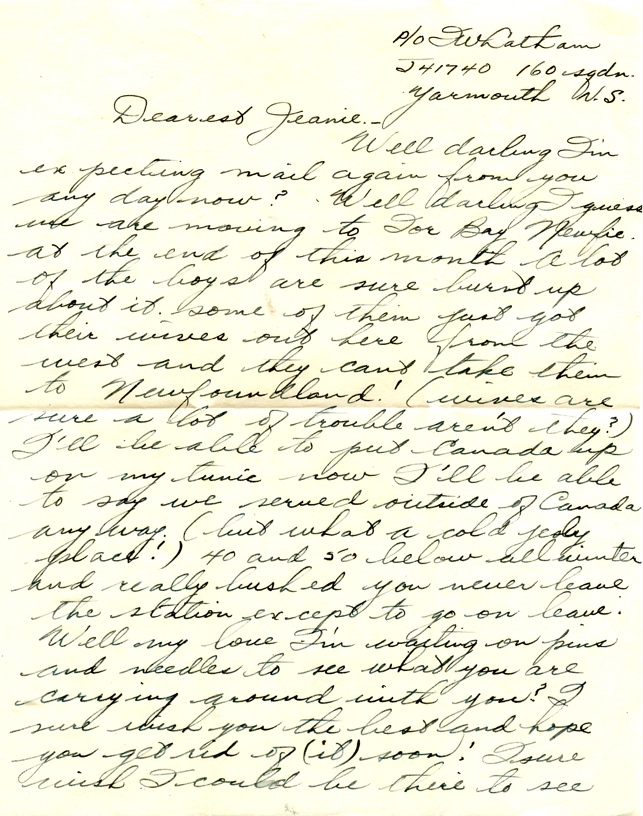 P/O J W Latham
J41740 160 sqdn.
Yarmouth N.S.
Dearest Jeanie.-
Well darling I'm
expecting mail again from you
any day now? Well darling I guess
we are moving to Tor Bay Newfie.
at the end of this month A lot
of the boys are sure burnt up
about it. some of them just got
their wives out here from the
west and they cant take them
to Newfoundland! (wives are
sure a lot of trouble aren't they?)
I'll be able to put Canada up
on my tunic now I'll be able
to say we served outside of Canada
any way. (but what a cold
place!) 40 and 50 below all winter
and really bushed you never leave
the station except to go on leave.
Well my love I'm waiting on pins
and needles to see what you are
carrying around with you? I
sure wish you the best and hope
you get rid of (it) soon! I sure
wish I could be there to see